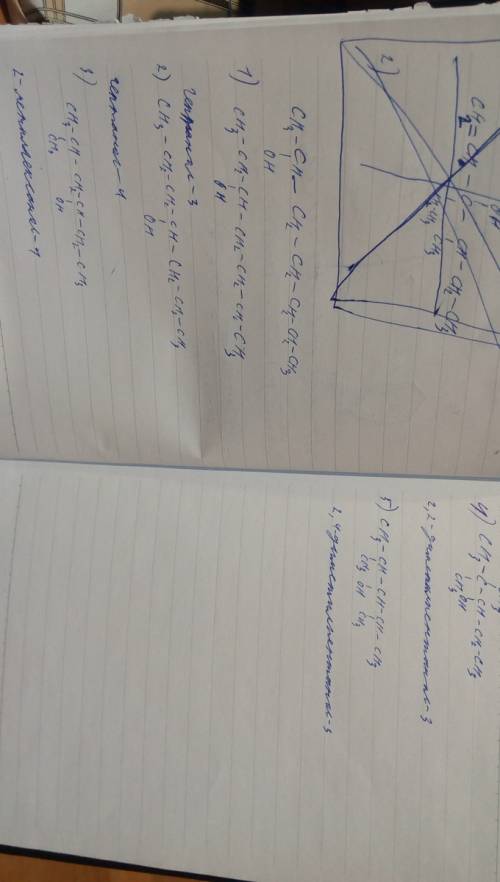 2)
OH
CH₂=CH-C-CH-CH₂-CH₃
CH₃ CH₃
CH₃-CH-CH₂-CH₂-CH₂-CH₂-CH₃
OH
1) CH₃-CH₂-CH-CH₂-CH₂-CH₂-CH₃
OH
гептанол-3
2) CH₃-CH₂-CH₂-CH-CH₂-CH₂-CH₃
OH
гептанол-4
3) CH₃-CH-CH₂-CH-CH₂-CH₃
CH₃ OH
2-метилгексанол-4
4) CH₃-C-CH-CH₂-CH₃
CH₃ OH
2,2-диметилпентанол-3
5) CH₃-CH-CH-CH-CH₃
CH₃ OH CH₃
2,4-диметилпентанол-3